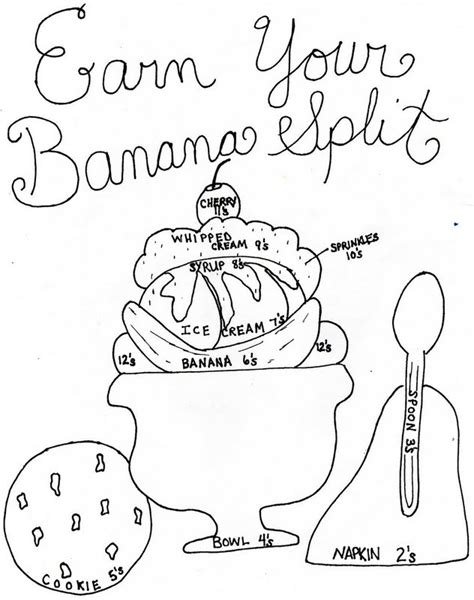 Earn Your
Banana Split
CHERRY
11's
WHIPPED
CREAM 9's
SPRINKLES
10's
SYRUP 8's
ICE CREAM 7's
12's
BANANA 6's
12's
SPOON 3's
BOWL 4's
NAPKIN 2's
COOKIE 5's